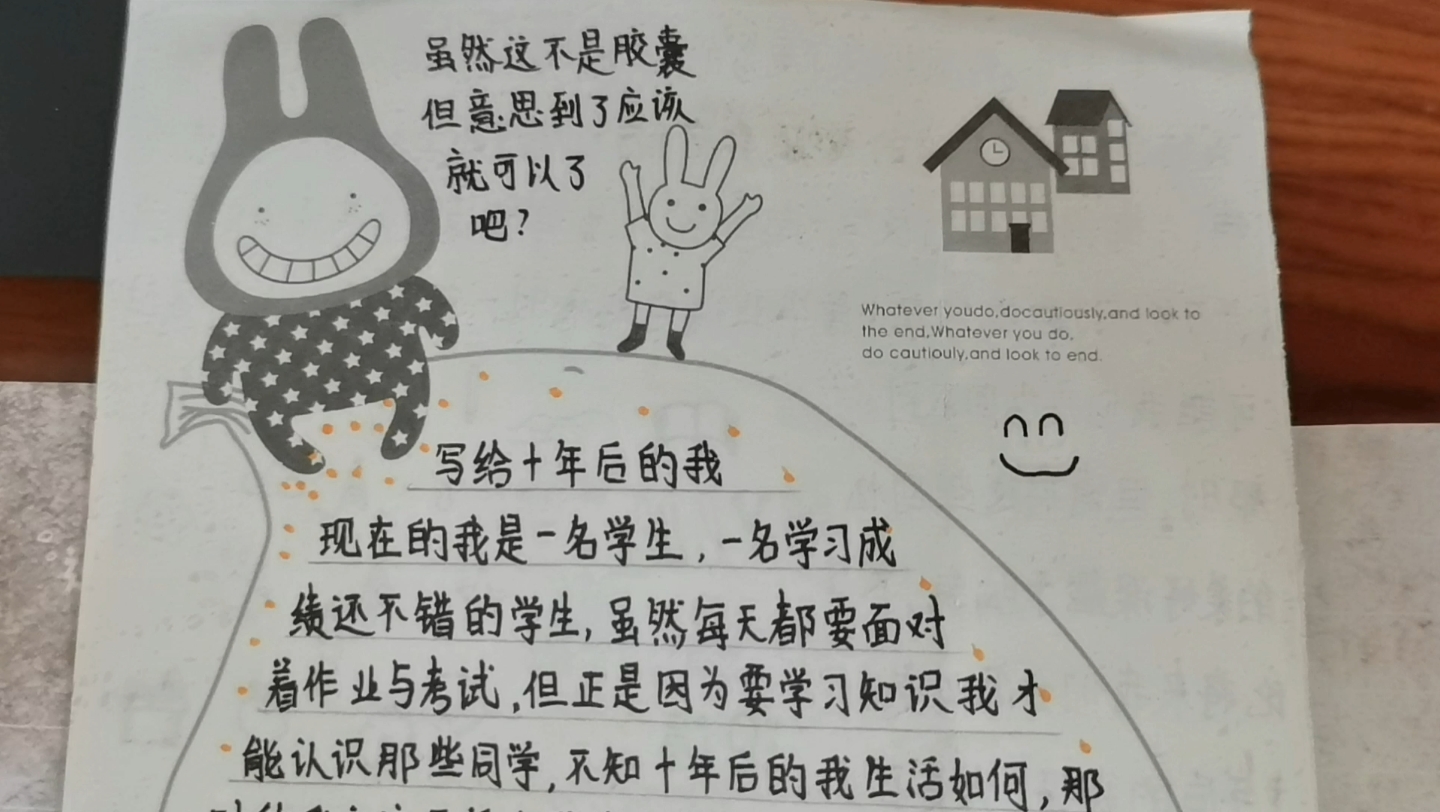 虽然这不是胶囊
但意思到了应该
就可以了
吧？
Whatever youdo,docautiously,and look to
the end,Whatever you do,
do cautiouly,and look to end.
写给十年后的我
现在的我是一名学生，一名学习成
绩还不错的学生，虽然每天都要面对
着作业与考试，但正是因为要学习知识我才
能认识那些同学，不知十年后的我生活如何，那